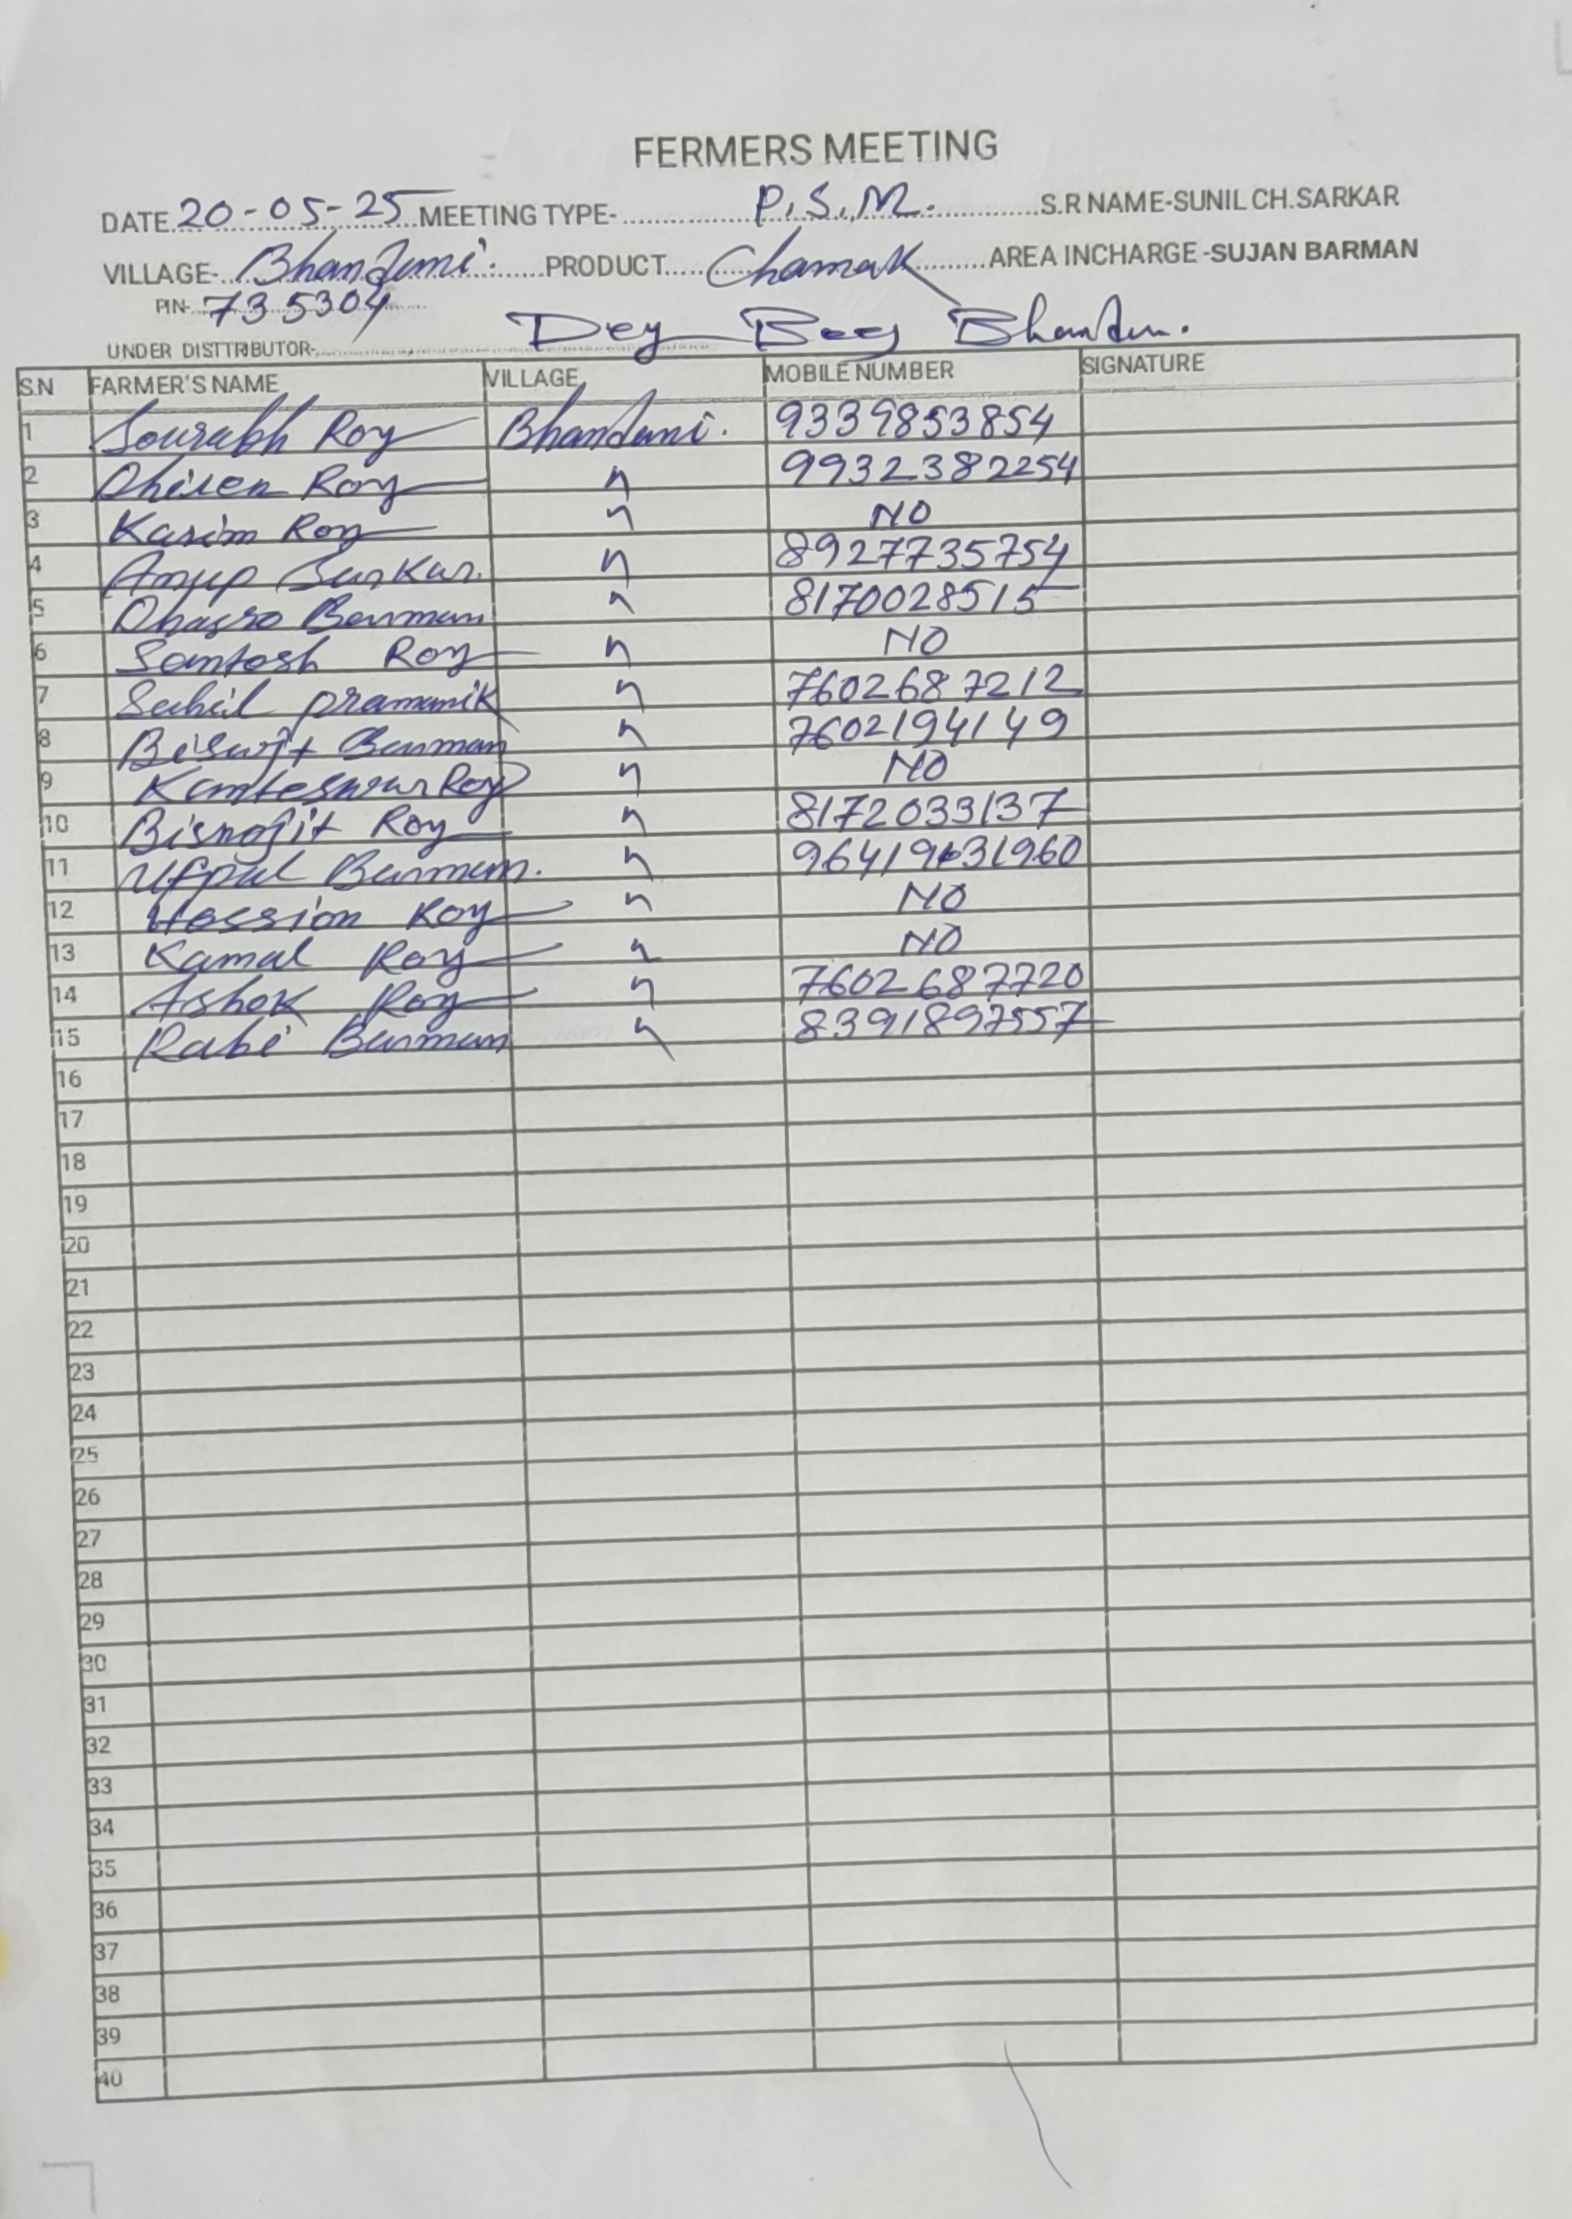 FERMERS MEETING
DATE 20-05-25 MEETING TYPE- P.S.M. S.R NAME-SUNIL CH.SARKAR
VILLAGE- Bhandani. PRODUCT Chamak AREA INCHARGE -SUJAN BARMAN
PIN- 735304
UNDER DISTTRIBUTOR- Dey Beej Bhandar.
S.N FARMER'S NAME VILLAGE MOBILE NUMBER SIGNATURE
1 Sourabh Roy Bhandani. 9339853854
2 Dhiren Roy 〃 9932382254
3 Kasim Roy 〃 NO
4 Anup Sarkar. 〃 8927735754
5 Barman 〃 8170028515
6 Santosh Roy 〃 NO
7 Sahil pramanik 〃 7602687212
8 Biswjit Barman 〃 7602194149
9 Kamteswar Roy 〃 NO
10 Biswojit Roy 〃 8172033137
11 Utpal Barman. 〃
12 Hossion Roy 〃 NO
13 Kamal Roy 〃 NO
14 Ashok Roy 〃 7602687720
15 Rabi Barman 〃 8391897557
16
17
18
19
20
21
22
23
24
25
26
27
28
29
30
31
32
33
34
35
36
37
38
39
40